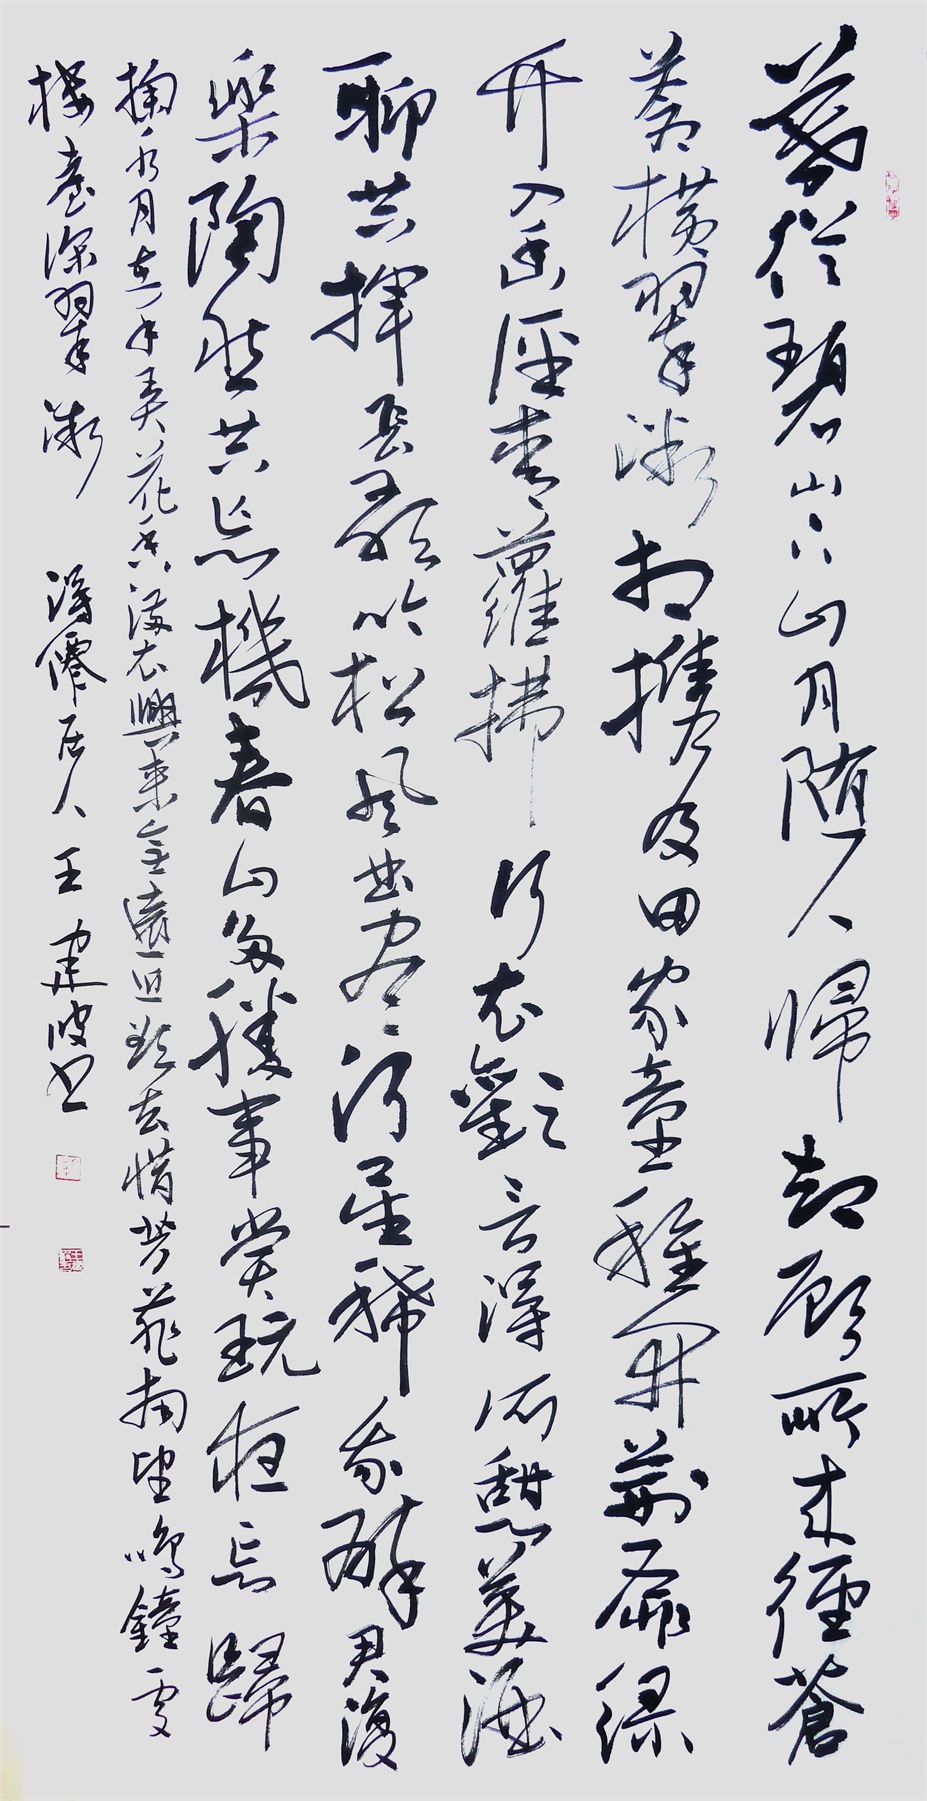 暮從碧山下山月随人歸却顧所來徑蒼
蒼橫翠微相攜及田家童稚開荊扉綠
竹入幽徑青蘿拂行衣歡言得所憩美酒
聊共揮長歌吟松風曲盡河星稀我醉君復
樂陶然共忘機春山多勝事賞玩夜忘歸
掬水月在手弄花香滿衣興來無遠近欲去惜芳菲南望鳴鐘處
樓臺深翠微 得僊居人王建波書